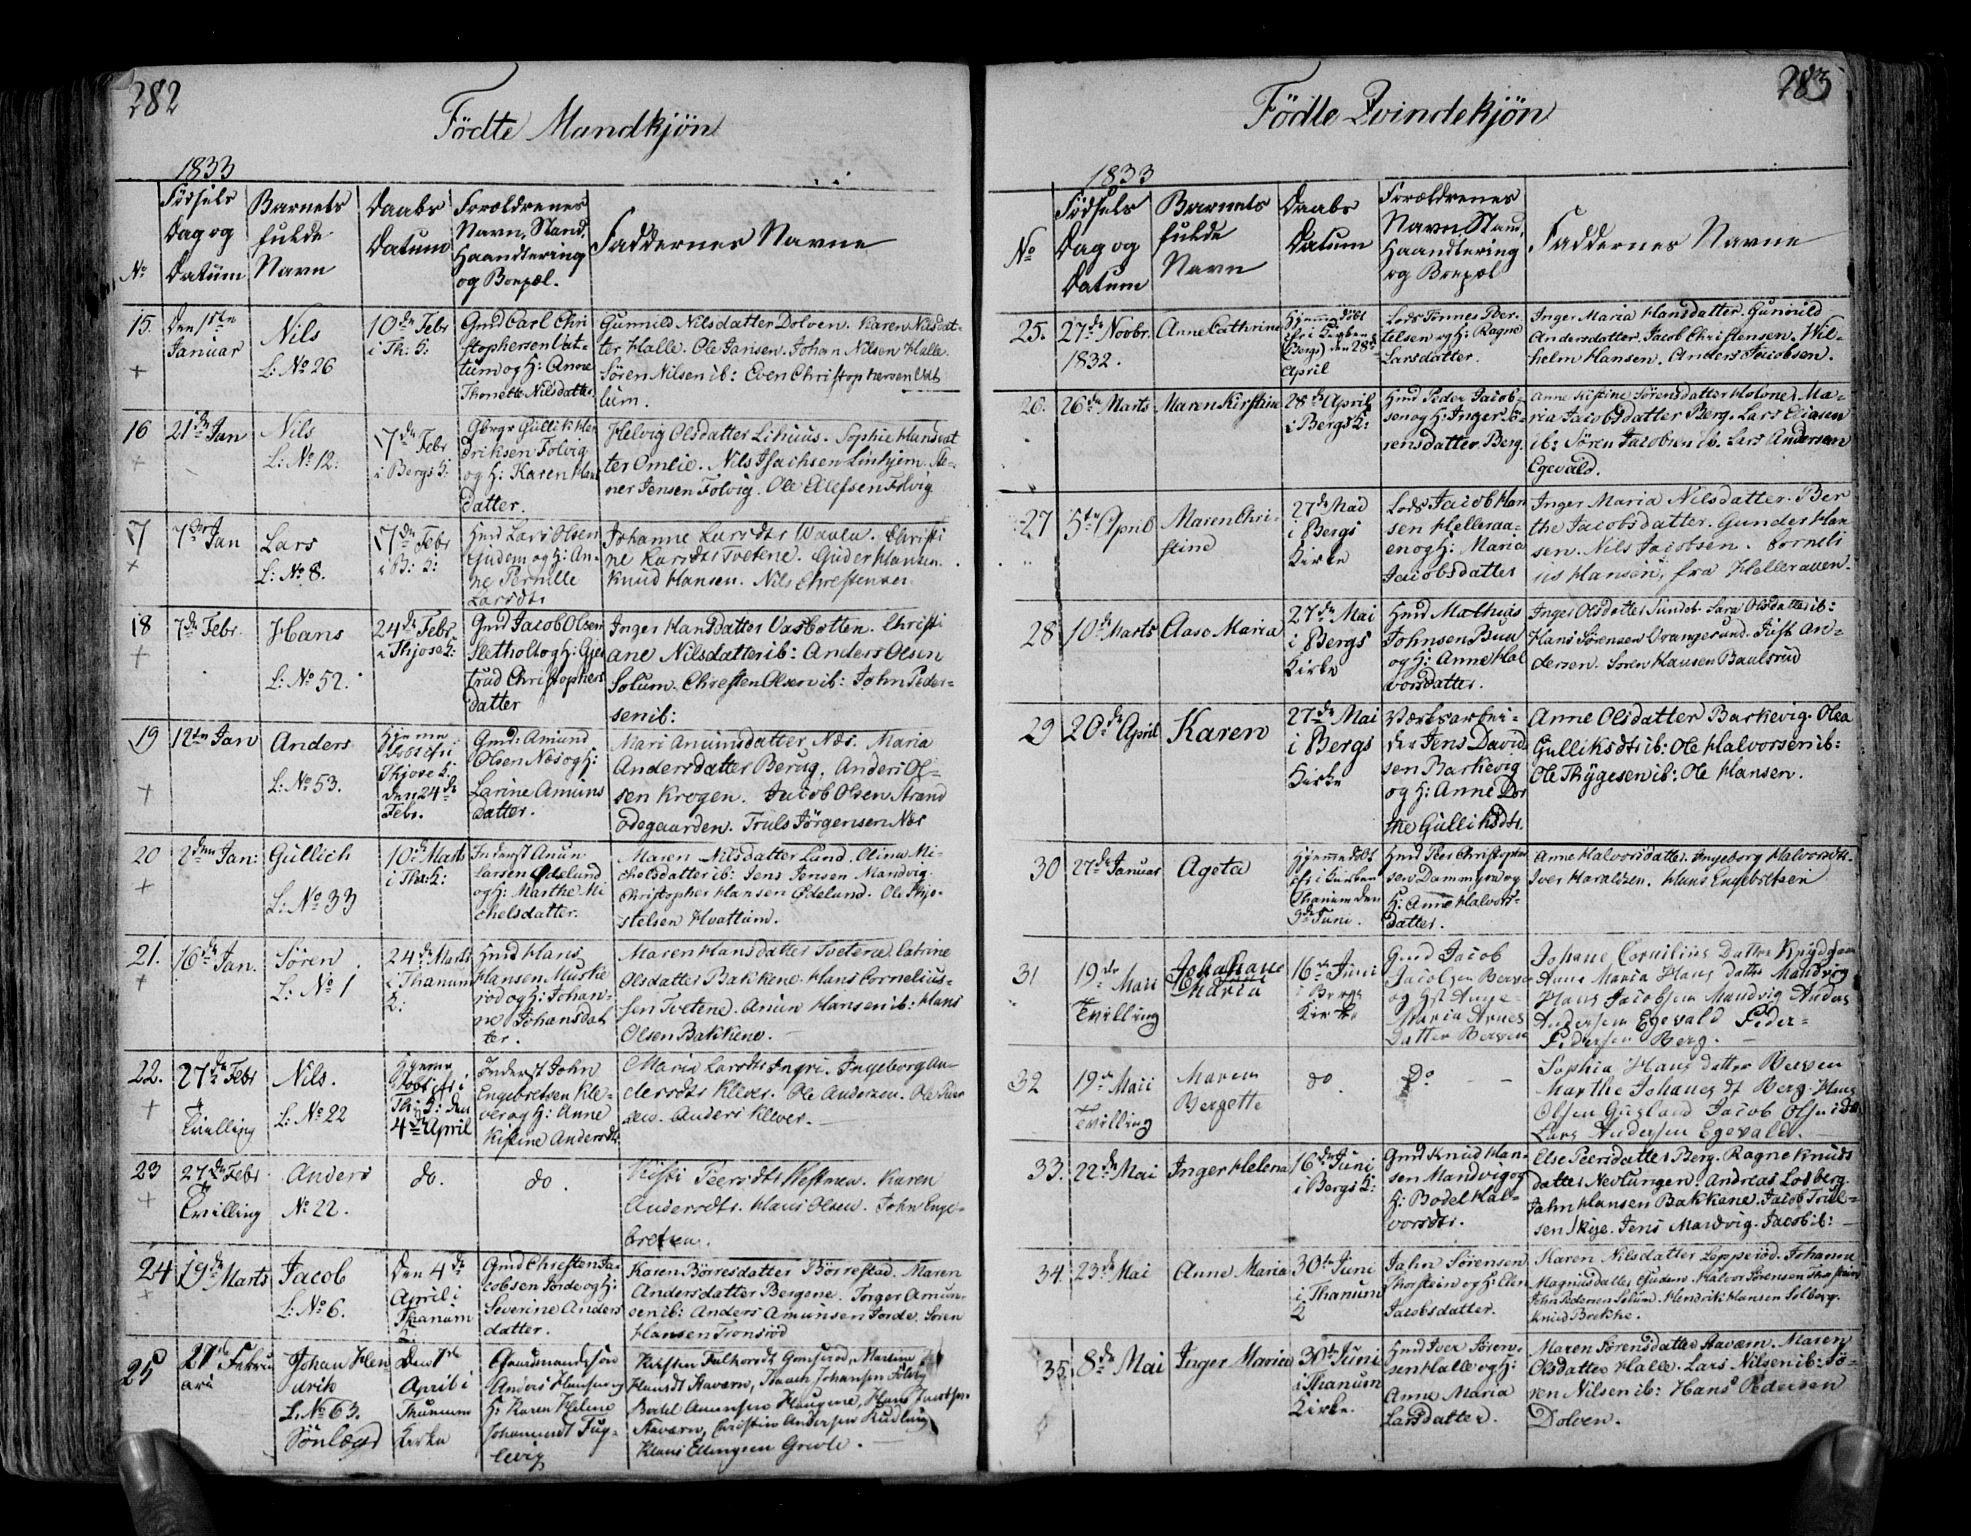 282
Födte Mandkjön
1833
No
Födsels Dag og Datum
Barnets fulde Navn
Daabs Datum
Forældrenes Navn, Stand, Haandtering og Bopæl.
Faddernes Navne
15.
Den 15te Januar
Nils
L: No 26
10de Febr
i Th: K:
Gmd Carl Chri
stophersen Vat-
tum og H: Anne
Thonette Nilsdatter
Gunnild Nilsdatter Dolven. Karen Nilsdat-
ter Halle. Ole Jansen. Johan Nilsen Halle.
Sören Nilsen ib: Even Christophersen Vat
tum.
16
21de Jan
Nils
L: No 12:
17de Febr
i Bergs K:
Gbrgr Gullik Hen
driksen Folvig
og H: Karen Hans
datter.
Helvig Olsdatter Lihuus. Sophie Hansdat
ter Omlie. Nils Isachsen Linhjem.
ner Jensen Folvig. Ole Ellefsen Folvig
17
7de Jan
Lars
L: No 8.
17de Febr
i B: K:
Hmd Lars Olsen
Gudem og H: An-
ne Pernille
Larsdtr
Johanne Larsdtr Waala. Christi
ne Larsdtr Tvetene. Guder Hansen.
Knud Hansen. Nils Christensen
18
7de Febr.
Hans
L: No 52.
24de Febr
i Thjose K:
Gmd Jacob Olsen
Sletholt og H: Gjer
trud Christophers
datter
Inger Hansdatter Vasbotten. Christi
ane Nilsdatter ib: Anders Olsen
Solum. Christen Olsen ib: John Peder-
sen ib:
19
12te Jan
Anders
L: No 53.
Hjemme
döbt Chr i
Thjose K:
den 24de
Febr.
Gmd: Amund
Olsen Næs og H:
Larine Amuns
datter.
Mari Amunsdatter Næs. Maria
Andersdatter Berug. Anders Ol-
sen Krogen. Jacob Olsen Strand
ödegaarden. Truls Jörgensen Næs
20
2den Jan:
Gullich
L: No 33
10de Marts
i Tha: K:
Inderst Anun
Larsen Ödelund
og H: Marthe Mi
chelsdatter.
Maren Nilsdatter Lund. Olina Mi-
chelsdatter ib: Jens Jensen Mandvig.
Christopher Hansen Ödelund. Ole Thjo-
stelsen Hvattum.
21.
16de Jan.
Sören
L: No 1
24de Marts
i Thanum
K:
Hmd Hans
Hansen Muske
röd og H: Johan-
ne Johansdat
ter.
Maren Hansdatter Tvetene. Catrine
Olsdatter Bakkene. Hans Cornelius-
sen Tvetene. Amun Hansen ib: Hans
Olsen Bakkene.
22.
27de Febr
Tvilling
Nils.
L: No 22
Hjemme
döbt Chr i
Th: K: den
4de April
Inderst John
Engebretsen Kle-
ver og H: Anne
Kistine Andersdtr.
Maria Larsdtr Ingri. Ingeborg An-
dersdtr Klever. Ole Andersen. Ole Peder
sen. Anders Klever.
23
27de Febr
Tvilling
Anders
No 22.
do.
do.
Kisti Peersdtr Restman. Karen
Andersdtr. Hans Olsen. John Enge-
bretsen.
24
19de Marts
Jacob
L: No 6.
Den 4de
April i
Thanum
K
Gmd Christen Ja-
cobsen Jorde og H:
Severine Anders
datter.
Karen Börresdatter Börrestad. Maren
Andersdatter Bergene. Torger Amun-
sen ib: Anders Amunsen Jorde. Sören
Hansen Tronsröd
25
27de Febru
ari
Johan Hen
drik
L: No 63.
Sönlægd
Den 7de
April i
Thanum
Kirke
Gaardmandssön
Anders Hansen og
H: Karen Helene
Johannesdt Fug-
levig
Kirsten Falkorsdt Gomsröd, Martine
Hansdt Stavern, Isaach Johansen Fölvig
Bertel Amensen Haugene, Hans Jacobsen
Stavern, Christen Andersen Rudlung
Klaus Ellingsen Grevle.
283
Födte Qvindekjön
1833
No
Födsels Dag og Datum
Barnets fulde Navn
Daabs Datum
Forældrenes Navn, Stand, Haandtering og Bopæl
Faddernes Navne
25.
27de Novbr.
1832.
Anne Cathrine
Hjemmedöbt
Chr i Kirken
(Bergs) den 28de
April
Lods Tönnes Ber-
telsen og H: Ragne
Larsdatter.
Inger Maria Hansdatter. Gunnild
Andersdatter. Jacob Christensen. Wil-
helm Hansen. Anders Jacobsen.
26.
26de Marts
Maren Kirstine
28de April
i Bergs K:
Hmd Peder Jacob-
sen og H: Inger Sö-
rensdatter Berg.
Anne Kistine Sörensdatter Holone. Ma-
ria Jacobsdatter Berg. Lars Eiasen
ib: Sören Jacobsen ib. Lars Andersen
Egevald.
27
5te April
Maren Chri-
stine
27de Mai
i Bergs
Kirke
Lods Jacob Han
sen Helleraa-
en og H: Maria
Jacobsdatter
Inger Maria Nilsdatter. Ber
the Jacobsdatter. Gunder Han
sen. Nils Jacobsen. Corneli
us Hansen, fra Helleraaen.
28
10de Marts
Aase Maria
27de Mai
i Bergs
Kirke
Hmd Mathias
Johnsen Buu
og H: Anne Hal
vorsdatter.
Inger Olsdatter Sundet. Sara Olsdatter ib:
Hans Sörensen Orangesund. Just An-
dersen. Sören Hansen Baulsrud
29
20de April
Karen
27de Mai
i Bergs
Kirke
Værksarbei-
der Jens David
sen Barkevig
og H: Anne Dor
the Gulliksdtr.
Anne Olsdatter Barkevig. Olea
Gulliksdtr ib: Ole Halvorsen ib:
Ole Thygesen ib: Ole Hansen.
30
27de Januar
Ageta
Hjemmedöbt
Chr i Kirken
Thanum den
9de Juni.
Hmd Peer Christophe
sen Dammyra og
H: Anne Halvors-
datter.
Anne Halvorsdatter. Ingeborg Halvorsdtr.
Iver Haraldsen. Hans Engebretsen
31
19de Mai
Tvilling
Johane
Maria
16de Juni
i Bergs
Kirke
Gmd Jacob
Jacobsen Berven
og Hst Anne
Maria Arnes
Datter Berven
Johane Cornilius Datter
Anne Maria Hans datter Mandvig
Hans Jacobsen Mandvig Anders
Andersen Egevald Peder
Pedersen Berg.
32
19de Mai
Tvilling
Maren
Bergette
do.
Do
Sophia Hans datter Berven
Marthe Johanes dt Berg. Hans
Olsen Gusland Jacob Olsen ib
Lars Andersen Egevald.
33.
22de Mai
Inger Helena
16de Juni
i Bergs K:
Gmd Knud Han-
sen Mandvig og
H: Bodel Hal-
vorsdtr.
Else Peersdatter Berg. Ragne Knuds
datter Nevlungen. Andreas Losberg.
John Hansen Bakkane. Jacob Trul-
sen Skye. Jens Mandvig. Jacob ib:
34.
23de Mai
Anne Maria
30te Juni
i Thanum
K
John Sörensen
Thorstein og H: Elen
Jacobsdatter.
Karen Nilsdatter Lepperöd. Johanne
Magnusdatter Gudem. Halvor Sörensen Thorstein
John Pedersen Solum. Hendrik Hansen Solberg.
Knud Brekke.
35.
8de Mai
Inger Maria
30te Juni
i Thanum
Kirke.
Hmd Iver Sören-
sen Halle og H:
Anne Maria
Larsdatter.
Maren Sörensdatter Stavern. Maren
Olsdatter Halle. Lars Nilsen ib: Sö-
ren Nilsen ib: Hans Pedersen
Dolven.